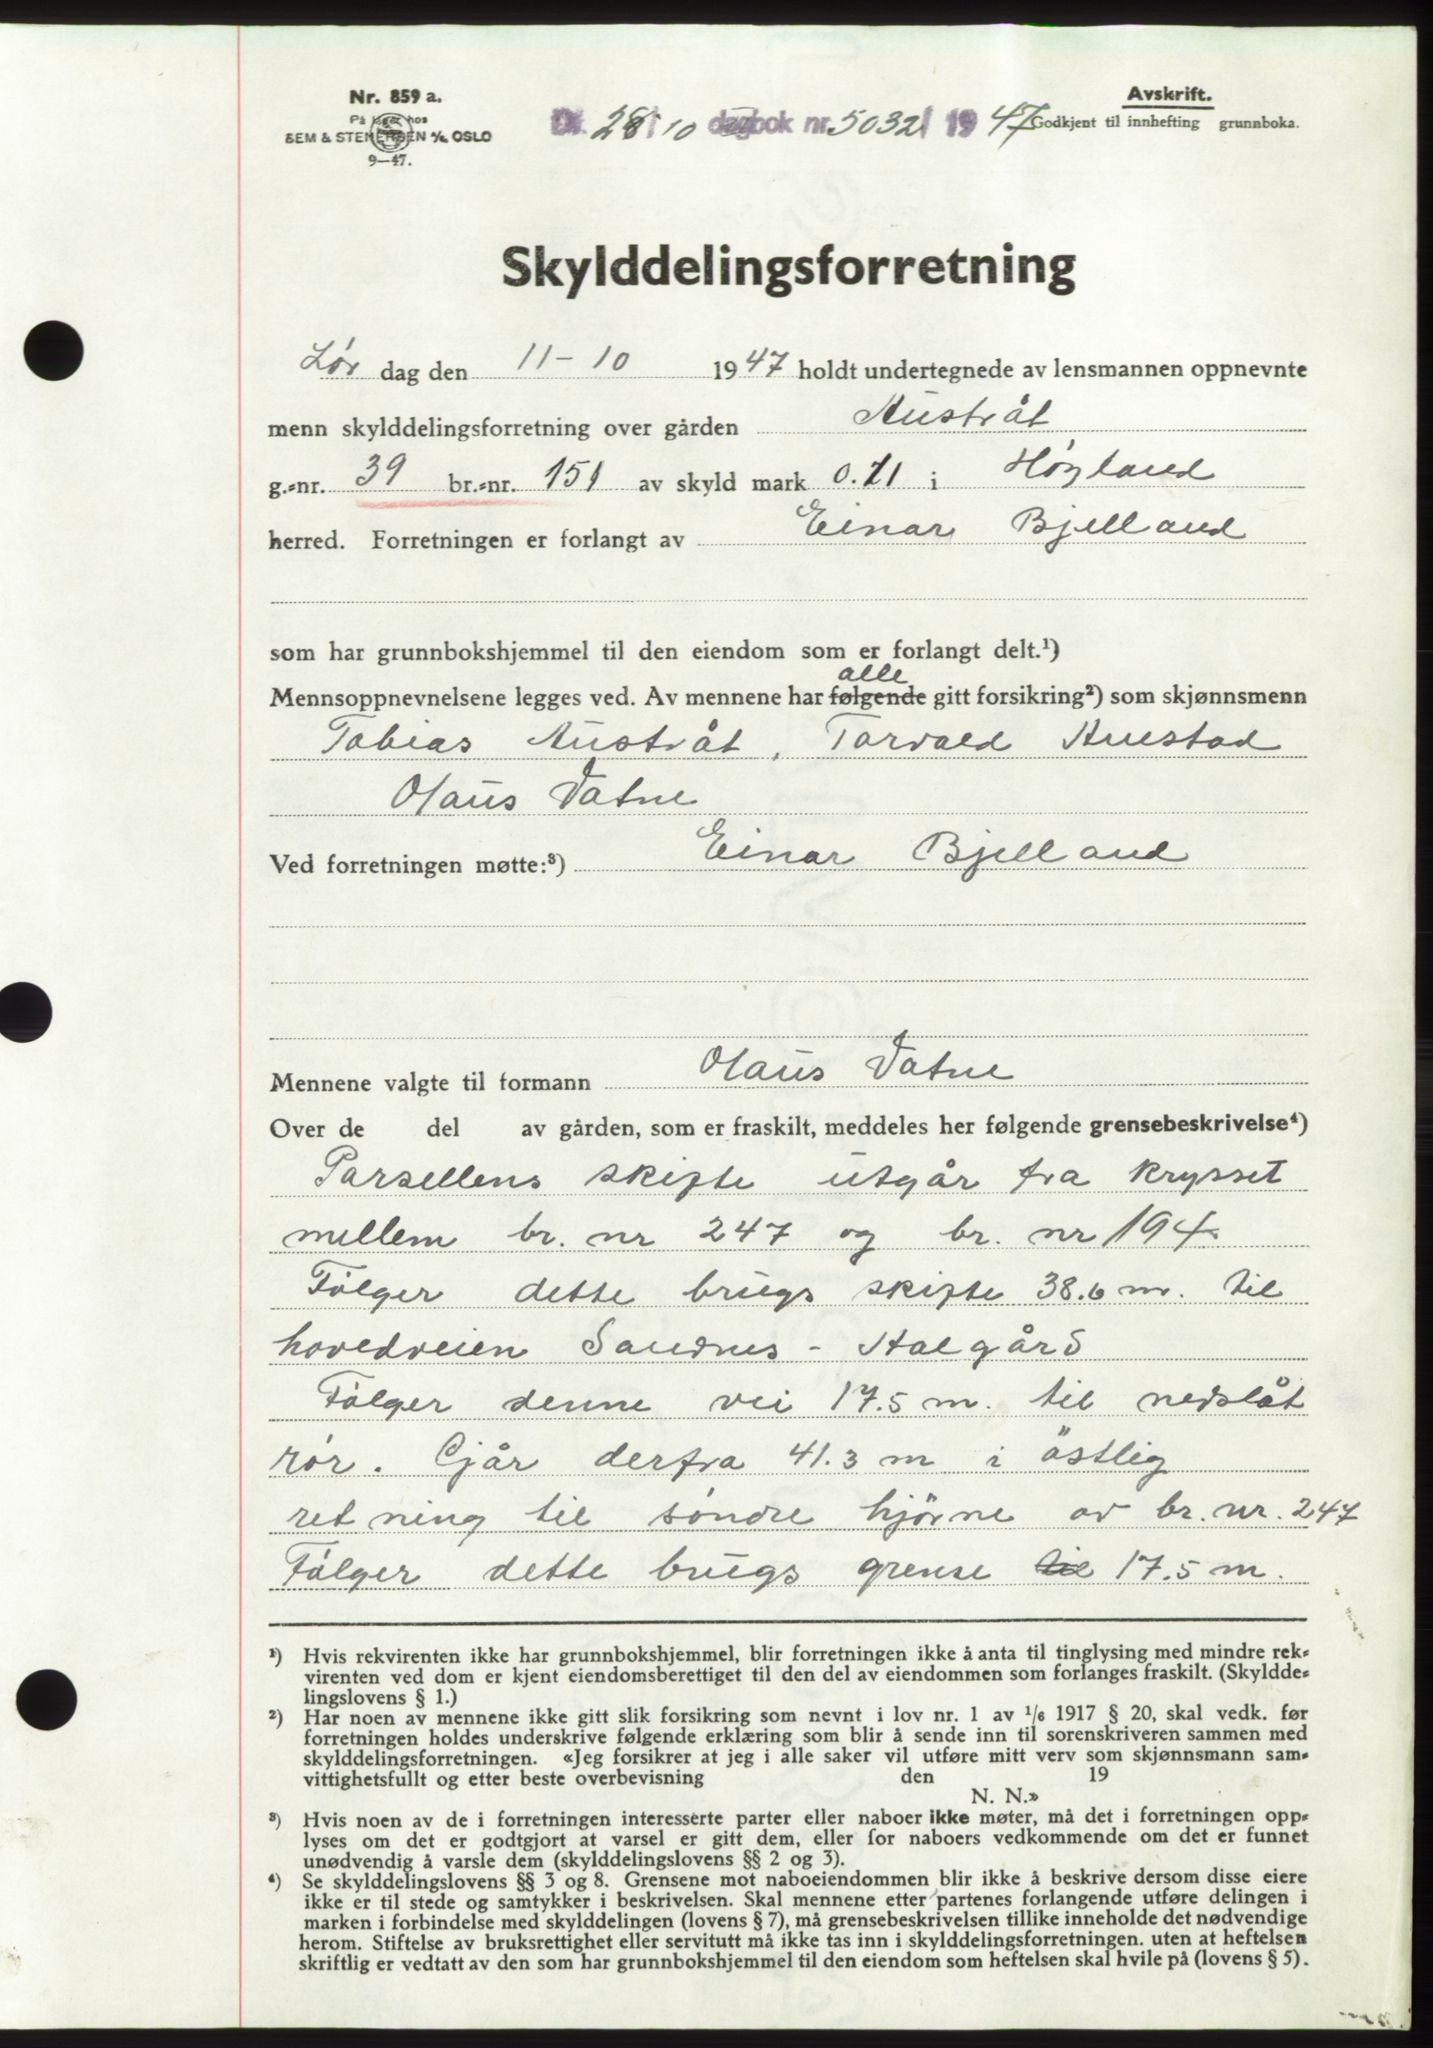 Nr. 859 a.
På lager hos
SEM & STENERSEN A/S OSLO
9—47.
Dt. 28/10 dagbok nr. 5032 1947
Avskrift.
Godkjent til innhefting grunnboka.
Skylddelingsforretning
Lør dag den 11-10 1947 holdt undertegnede av lensmannen oppnevnte
menn skylddelingsforretning over gården Austråt
g.=nr. 39 br.=nr. 151 av skyld mark 0.71 i Høyland
herred. Forretningen er forlangt av Einar Bjelland
som har grunnbokshjemmel til den eiendom som er forlangt delt.¹)
alle
Mennsoppnevnelsene legges ved. Av mennene har følgende gitt forsikring²) som skjønnsmenn
Tobias Austråt, Torvald Auestad
Olaus Vatne
Ved forretningen møtte:³) Einar Bjelland
Mennene valgte til formann Olaus Vatne
Over de del av gården, som er fraskilt, meddeles her følgende grensebeskrivelse⁴)
Parsellens skifte utgår fra krysset
mellem br. nr 247 og br. nr 194.
Følger dette brugs skifte 38.6 m. til
hovedveien Sandnes - Aalgård
Følger denne vei 17.5 m. til nedslåt
rør. Gjår derfra 41.3 m i östlig
retning til søndre hjörne av br. nr. 247
Følger dette brugs grense til 17.5 m.
¹) Hvis rekvirenten ikke har grunnbokshjemmel, blir forretningen ikke å anta til tinglysing med mindre rek=
virenten ved dom er kjent eiendomsberettiget til den del av eiendommen som forlanges fraskilt. (Skyldde=
lingslovens § 1.)
²) Har noen av mennene ikke gitt slik forsikring som nevnt i lov nr. 1 av ¹/₆ 1917 § 20, skal vedk. før
forretningen holdes underskrive følgende erklæring som blir å sende inn til sorenskriveren sammen med
skylddelingsforretningen. «Jeg forsikrer at jeg i alle saker vil utføre mitt verv som skjønnsmann sam=
vittighetsfullt og etter beste overbevisning den 19
N. N.»
³) Hvis noen av de i forretningen interesserte parter eller naboer ikke møter, må det i forretningen opp=
lyses om det er godtgjort at varsel er gitt dem, eller for naboers vedkommende om det er funnet
unødvendig å varsle dem (skylddelingslovens §§ 2 og 3).
⁴) Se skylddelingslovens §§ 3 og 8. Grensene mot naboeiendommen blir ikke å beskrive dersom disse eiere
ikke er til stede og samtykker i beskrivelsen. Skal mennene etter partenes forlangende utføre delingen i
marken i forbindelse med skylddelingen (lovens § 7), må grensebeskrivelsen tillike inneholde det nødvendige
herom. Stiftelse av bruksrettighet eller servitutt må ikke tas inn i skylddelingsforretningen. uten at heftelsen
skriftlig er vedtatt av den som har grunnbokshjemmel til den eiendom som heftelsen skal hvile på (lovens § 5).